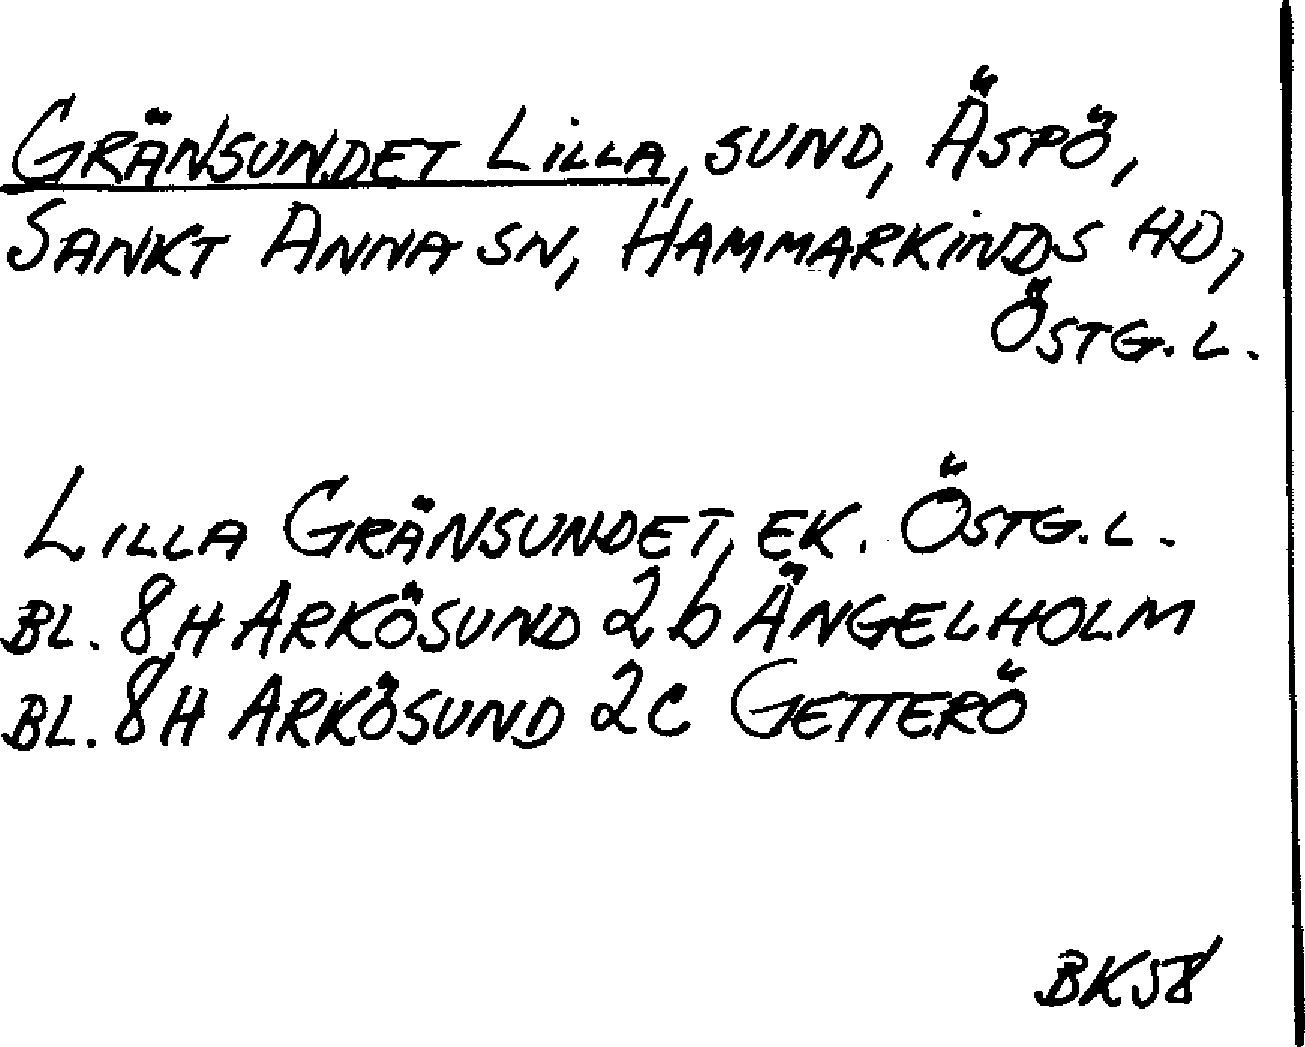 GRÄNSUNDET LILLA, SUND, ÄSPÖ,
SANKT ANNA SN, HAMMARKINDS HD,
ÖSTG. L.
LILLA GRÄNSUNDET, EK. ÖSTG. L.
BL. 8H ARKÖSUND 2b ÄNGELHOLM
BL. 8H ARKÖSUND 2C GETTERÖ
BK58